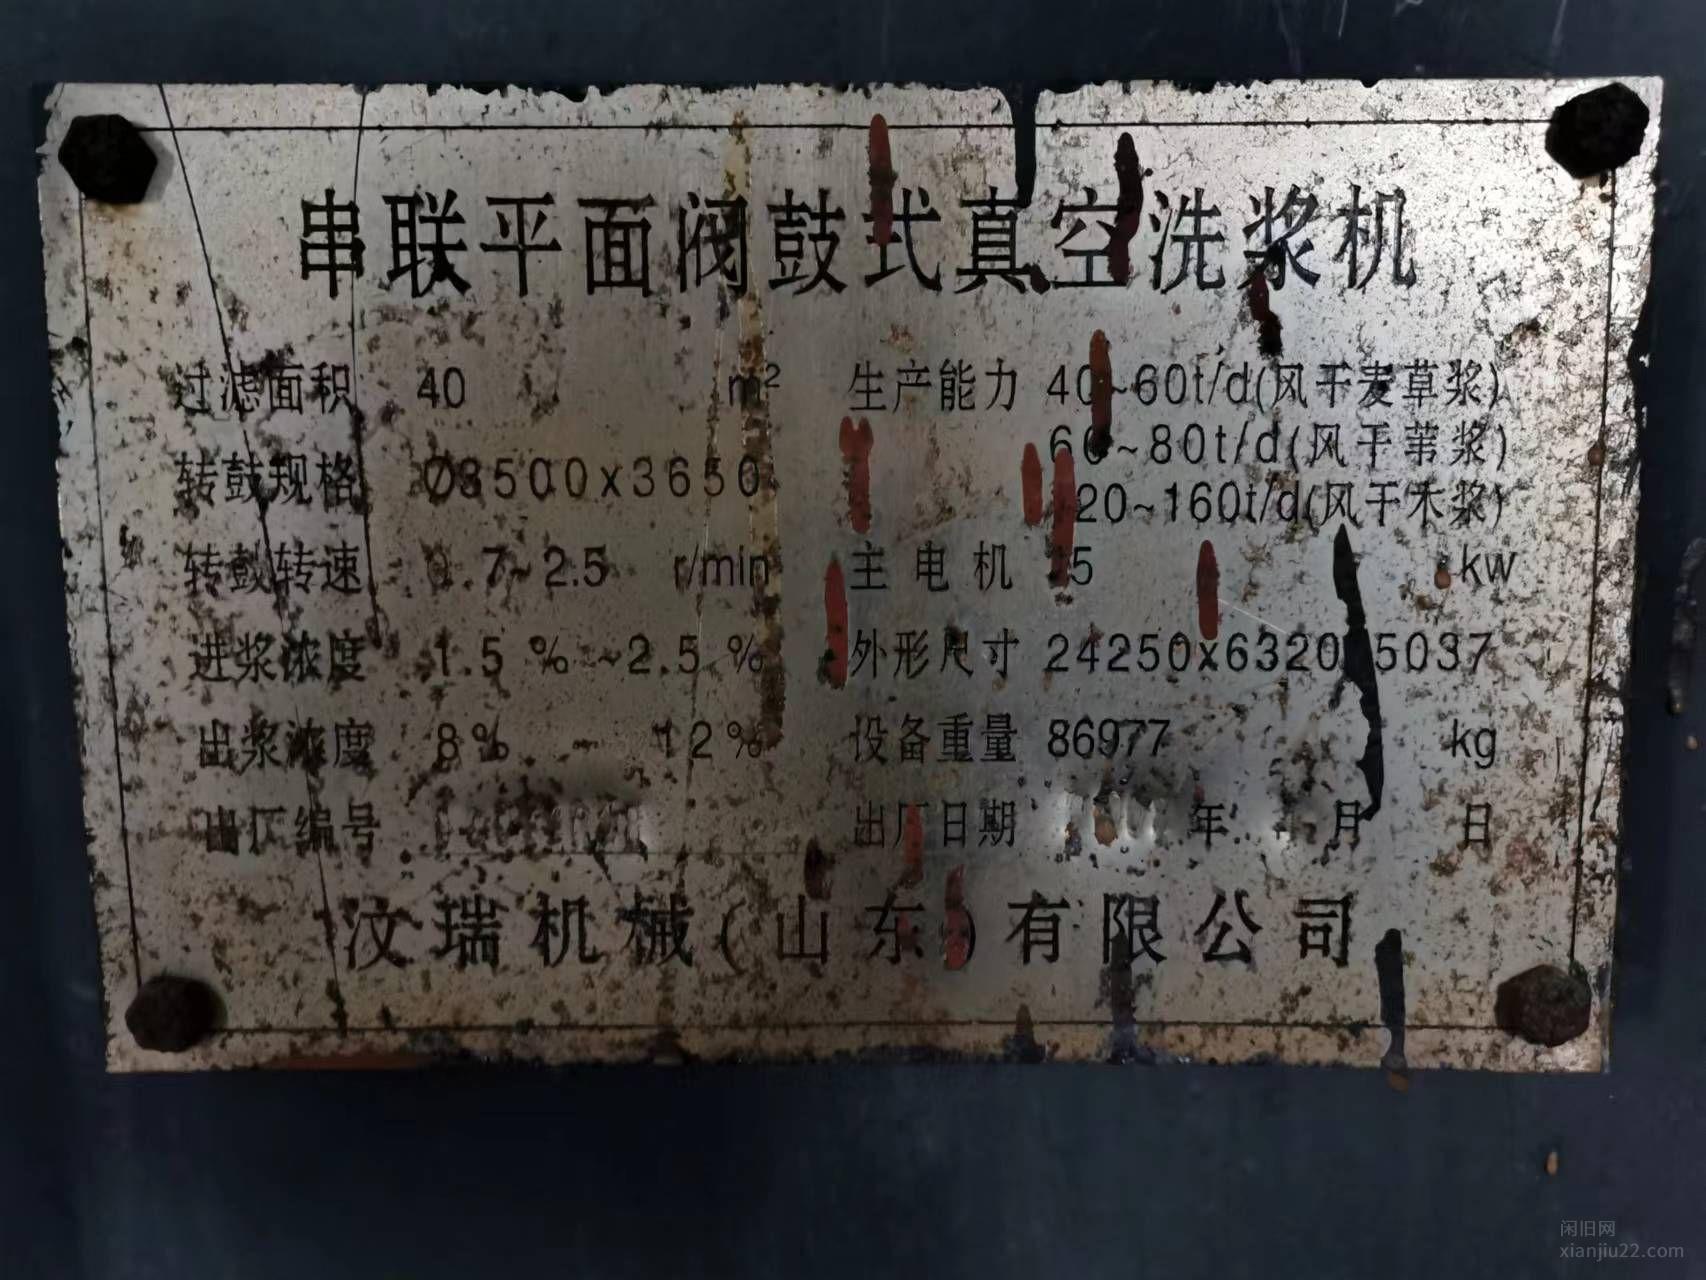 串联平面阀鼓式真空洗浆机
过滤面积 40 m² 生产能力 40~60t/d(风干麦草浆)
60~80t/d(风干苇浆)
转鼓规格 Ø3500x3650
20~160t/d(风干木浆)
转鼓转速 1.7~2.5 r/min 主电机 5 kw
进浆浓度 1.5%~2.5% 外形尺寸 24250x6320 5037
出浆浓度 8% - 12% 设备重量 86977 kg
出厂编号 出厂日期 年 月 日
汶瑞机械(山东)有限公司
闲旧网
xianjiu22.com